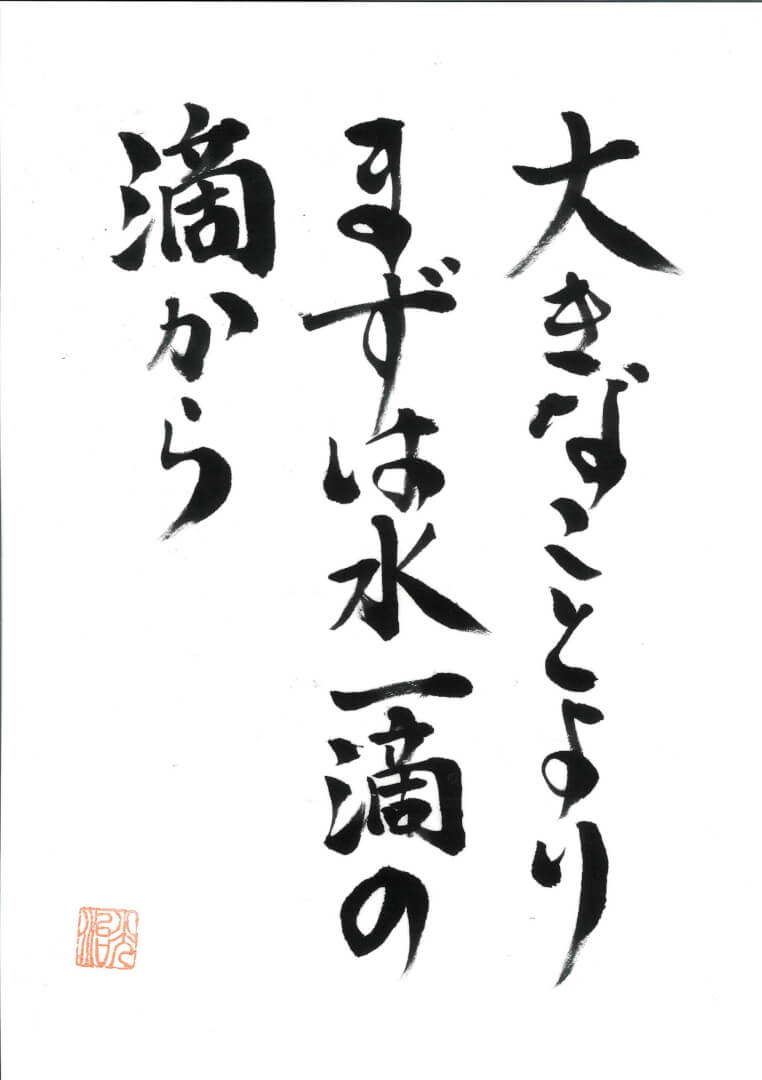 大きなことより
まずは水一滴の
滴から